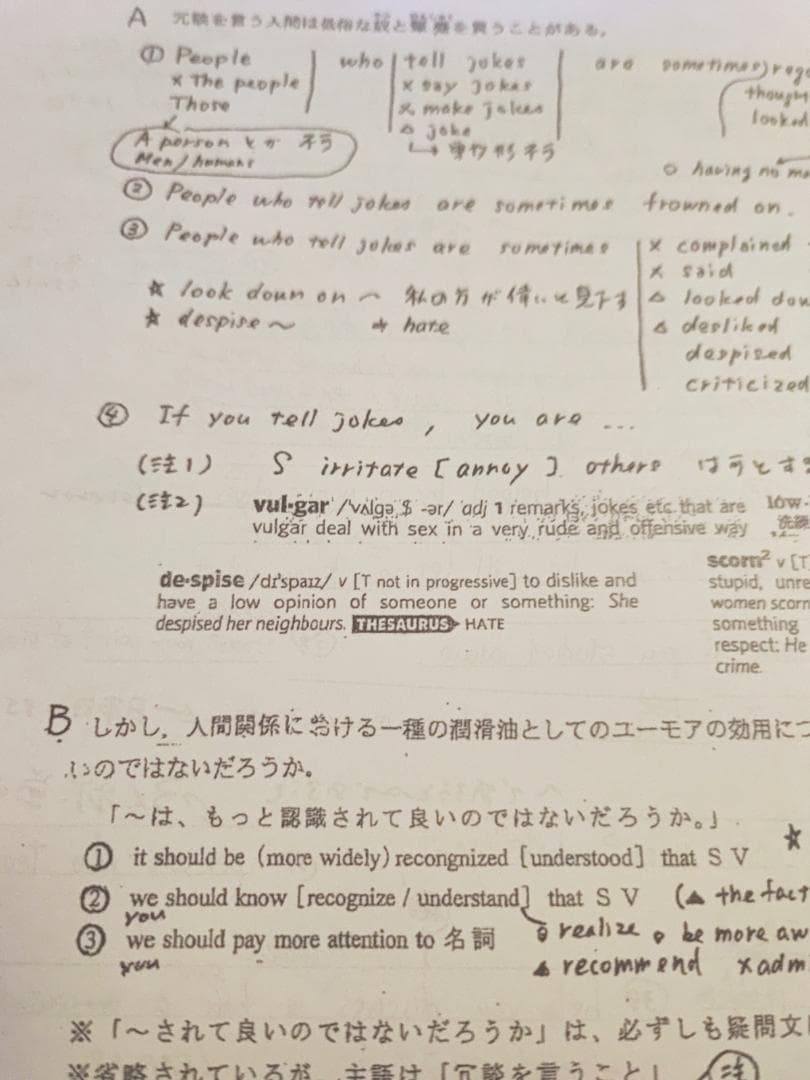 A 冗談を言う人間は低俗な奴と顰蹙を買うことがある。
① People who tell jokes are sometimes
× The people × say jokes thought
Those × make jokes looked
△ joke
A person とか ネラ
Men/humans
○ having no
② People who tell jokes are sometimes frowned on.
③ People who tell jokes are sometimes × complained
× said
★ look down on ～ 私の方が偉いと見下す △ looked
★ despise ～ ⇒ hate △ desliked
despised
criticized
④ If you tell jokes, you are ...
(注1) S irritate [annoy] others
(注2) vul·gar /ˈvʌlgə $ -ər/ adj 1 remarks, jokes etc that are low-
vulgar deal with sex in a very rude and offensive way 洗練
scorn² v [T
de·spise /dɪˈspaɪz/ v [T not in progressive] to dislike and stupid, unre
have a low opinion of someone or something: She women scorn
despised her neighbours. THESAURUS HATE something
respect: He
crime.
B しかし，人間関係における一種の潤滑油としてのユーモアの効用につ
いのではないだろうか。
「～は、もっと認識されて良いのではないだろうか。」
① it should be (more widely) recongnized [understood] that S V ★
② we should know [recognize / understand] that S V (▲ the fact
you ○ realize ○ be more aw
③ we should pay more attention to 名詞
you ▲ recommend × adm
※「～されて良いのではないだろうか」は、必ずしも疑問文
※省略されているが、主語は「冗談を言うこと」 注